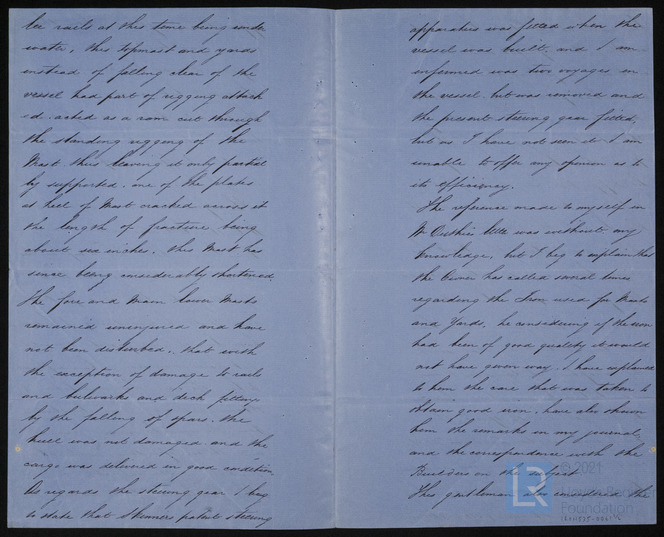 lee rails at this time being under
water, this topmast and yards
instead of falling clear of the
vessel had part of rigging attach
ed. acted as a ram cut through
the standing rigging of the
Mast thus leaving it only partial
ly supported. one of the plates
at heel of Mast cracked across it
the length of fracture being
about six inches. this Mast has
since being considerably shortened.
The fore and Main lower Masts
remained uninjured and have
not been disturbed, that with
the exception of damage to rails
and bulwarks and deck fittings
by the falling of spars, the
hull was not damaged and the
cargo was delivered in good condition
As regards the steering gear I beg
to state that Skinners patent steering
apparatus was fitted when the
vessel was built, and I am
informed was two voyages in
the vessel. but was removed and
the present steering gear fitted,
but as I have not seen it I am
unable to offer any opinion as to
its efficiency.
The reference made to myself in
Mr letter was without my
knowledge, but I beg to explain that
the Owner has called several times
regarding the Iron used for Masts
and Yards, he considering if the iron
had been of good quality it would
not have given way. I have explained
to him the care that was taken to
obtain good iron, have also shown
him the remarks in my journal,
and the correspondence with the
Builders on the subject.
This gentleman also considered the
LR
© 2021
Foundation